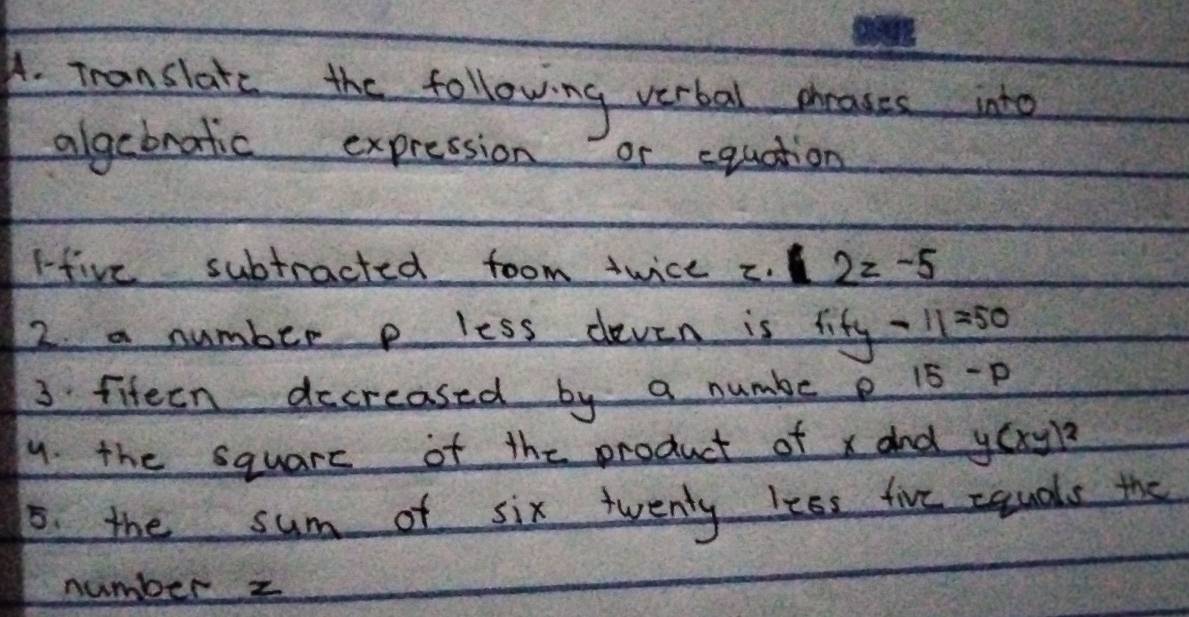 A. Translate the following verbal phrases into
algebnatic expression or equation
1-five subtracted foom twice z. 2z -5
2. a number p less eleven is fify - 11=50
3. fifeen decreased by a numbe p 15 -p
4. the square of the product of x and y(xy)2
5. the sum of six twenty less five equals the
number z